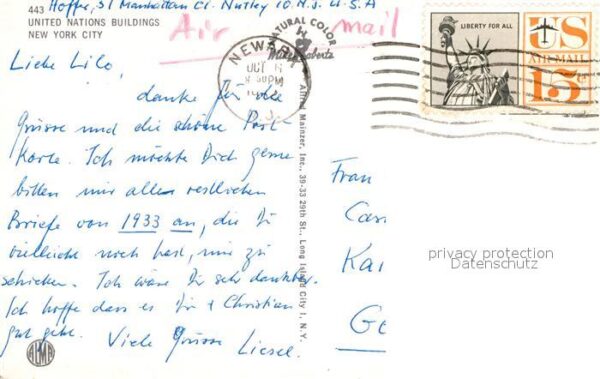 443 Hoffer, 31 Manhattan Ct. Nutley 10. N.J. U.S.A
UNITED NATIONS BUILDINGS
NEW YORK CITY
Air mail
NATURAL COLOR
Alfred Mainzer, Inc., 39-33 29th St., Long Island City I, N.Y.
ALMA
NEWARK
OCT
N.J.
LIBERTY FOR ALL
US
AIR MAIL
15c
Liebe Lilo,
danke für die
Grüsse und die schöne Post-
karte. Ich möchte Dich gerne
bitten mir alle restlichen
Briefe von 1933 an, die Du
vielleicht noch hast, mir zu
schicken. Ich wäre Dir sehr dankbar.
Ich hoffe dass es Dir + Christian
gut geht.
Viele Grüsse Liesel.
Frau
Car
Kar
Ge
privacy protection
Datenschutz